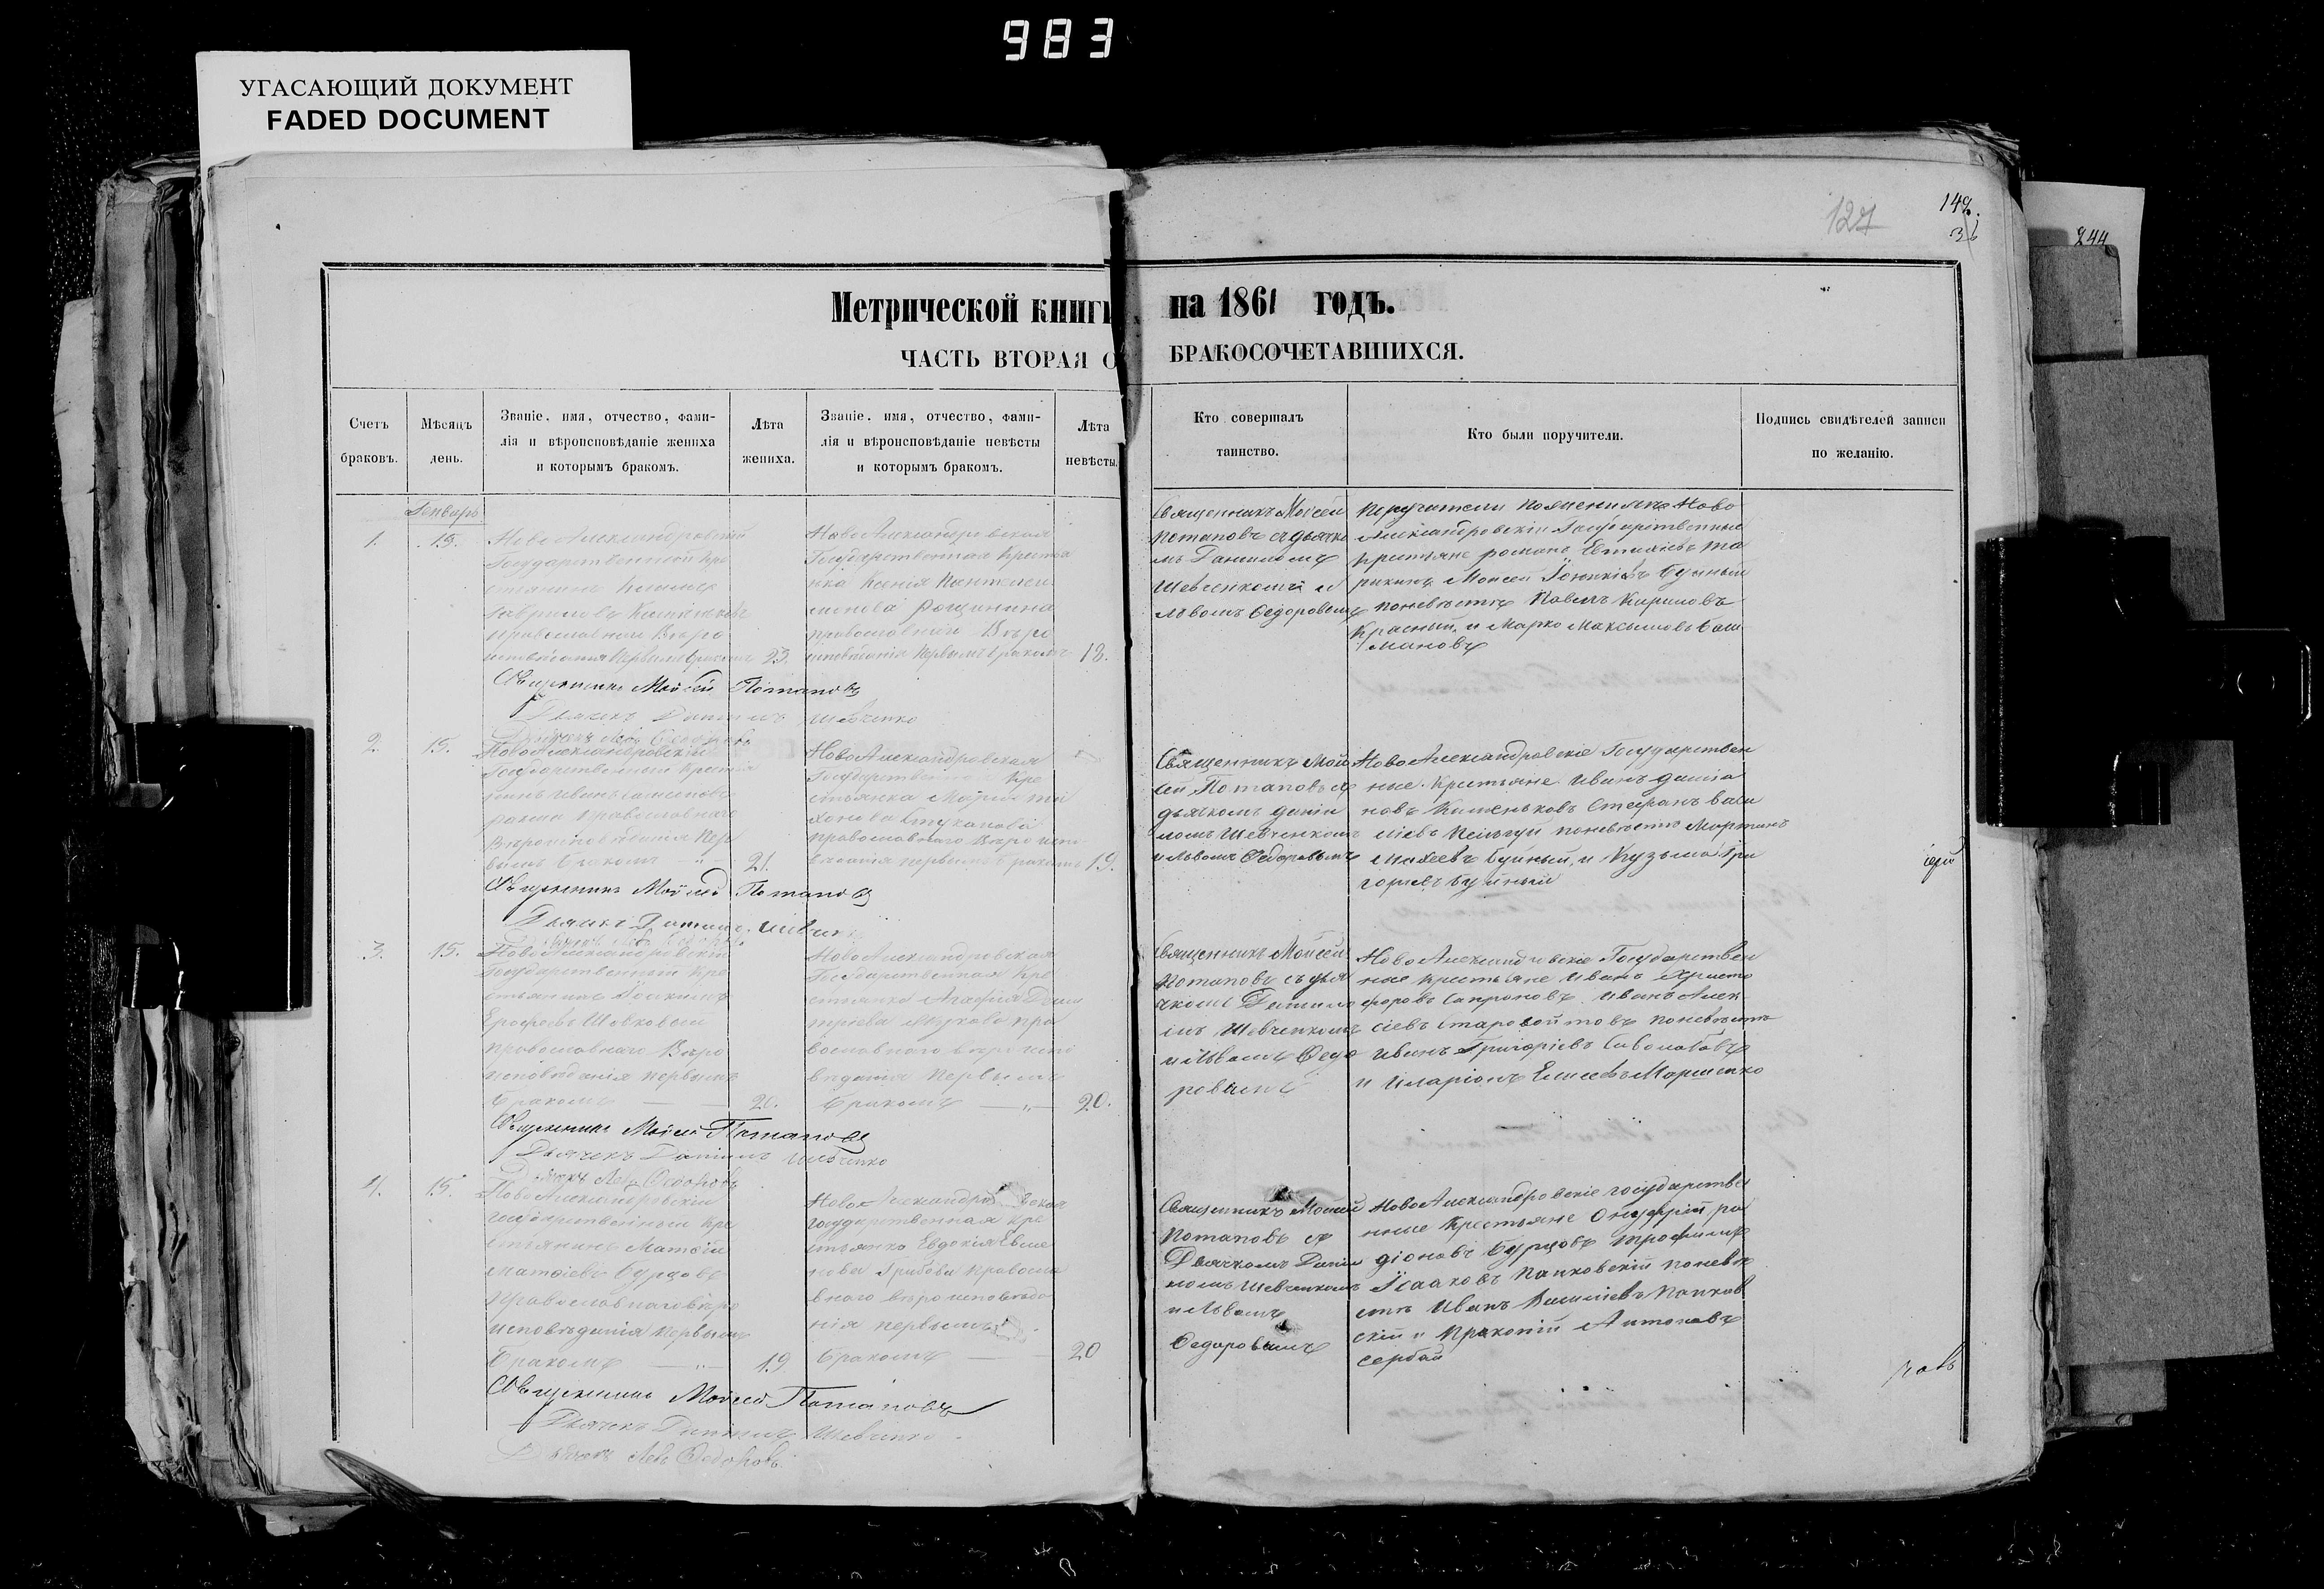 983
УГАСАЮЩИЙ ДОКУМЕНТ
FADED DOCUMENT
127
149.
36
244
Метрической книги на 1861 годъ.
ЧАСТЬ ВТОРАЯ О БРАКОСОЧЕТАВШИХСЯ.
Счетъ браковъ.
Мѣсяцъ день.
Званіе, имя, отчество, фами-
лія и вѣроисповѣданіе жениха
и которымъ бракомъ.
Лѣта жениха.
Званіе, имя, отчество, фами-
лія и вѣроисповѣданіе невѣсты
и которымъ бракомъ.
Лѣта невѣсты.
Кто совершалъ
таинство.
Кто были поручители.
Подпись свидѣтелей записи
по желанію.
Генварь
1.
15.
Ново Александровскій
Государственный кре
стьянинъ
Гавриловъ
православнаго Вѣро
исповѣданія первымъ бракомъ
23.
Ново Александровская
Государственная крестья
нка Ксенія Пантелеи
монова Рощинина
православнаго Вѣро
исповѣданія первымъ бракомъ
18.
Священникъ Моисей
Потаповъ съ дьячко
мъ Даніиломъ
Шевченкомъ и
Львомъ Ѳедоровымъ
поручители по женихѣ Ново
Александровскіи Государственные
крестьяне романъ Евтихіевъ
Моисей Буйный
по невѣстѣ Павелъ Кириловъ
Красный, и Марко Максимовъ
Священникъ Моисей Потаповъ
Дьячекъ Даніилъ Шевченко
Дьячекъ Левъ Ѳедоровъ
2.
15.
НовоАлександровскій
Государственный крестья
нинъ Иванъ
православнаго
Вѣроисповѣданія пер
вымъ бракомъ
21.
НовоАлександровская
Государственная Кре
стьянка Марія Ти
хонова Стуканова
православнаго Вѣроиспо
вѣданія первымъ бракомъ
19.
Священникъ Мои
сей Потаповъ съ
дьячкомъ Даніи
ломъ Шевченкомъ
и Львомъ Ѳедоровымъ
НовоАлександровскіе Государствен
ные Крестьяне Иванъ Дани
ловъ Каменьковъ Стефанъ Васи
ліевъ по невѣстѣ Мартинъ
Михеевъ Буйный, и Кузьма Гри
горьевъ Буйный
Священникъ Моисей Потаповъ
Дьячекъ Даніилъ Шевченко
3.
15.
НовоАлександровскій
Государственный кре
стьянинъ
Ерофеевъ Шовковый
православнаго Вѣро
исповѣданія первымъ
бракомъ
20.
НовоАлександровская
Государственная Кре
стьянка Агафія Дми
тріева пра
вославнаго вѣроиспо
вѣданія первымъ
бракомъ
20.
Священникъ Моисей
Потаповъ съ дья
чкомъ Даніило
мъ Шевченкомъ
и Львомъ Ѳедо
ровымъ
НовоАлександровскіе Государствен
ные крестьяне Иванъ Христо
форовъ Сапроновъ Иванъ Алек
сіевъ Старовойтовъ по невѣстѣ
Иванъ Григоріевъ
и Иларіонъ Елисеевъ Марченко
Священникъ Моисей Потаповъ
Дьячекъ Даніилъ Шевченко
Дьячекъ Левъ Ѳедоровъ
4.
15.
НовоАлександровскій
государственный кре
стьянинъ Матѳій
Матѳіевъ Бурцовъ
православнаго вѣро
исповѣданія первымъ
бракомъ
19
НовоАлександровская
государственная кре
стьянка Евдокія
Грибова правосла
внаго вѣроисповѣда
нія первымъ
бракомъ
20
Священникъ Моисей
Потаповъ съ
Дьячкомъ Даніи
ломъ Шевченкомъ
и Львомъ
Ѳедоровымъ
НовоАлександровскіе государствен
ные Крестьяне Онуфрій ра
діоновъ Бурцовъ Трофимъ
Ісааковъ Панковскій по невѣ
стѣ Иванъ Василіевъ Панков
скій и Прокопій Антоновъ
Сербай
Священникъ Моисей Потаповъ
Дьячекъ Даніилъ Шевченко
Дьячекъ Левъ Ѳедоровъ